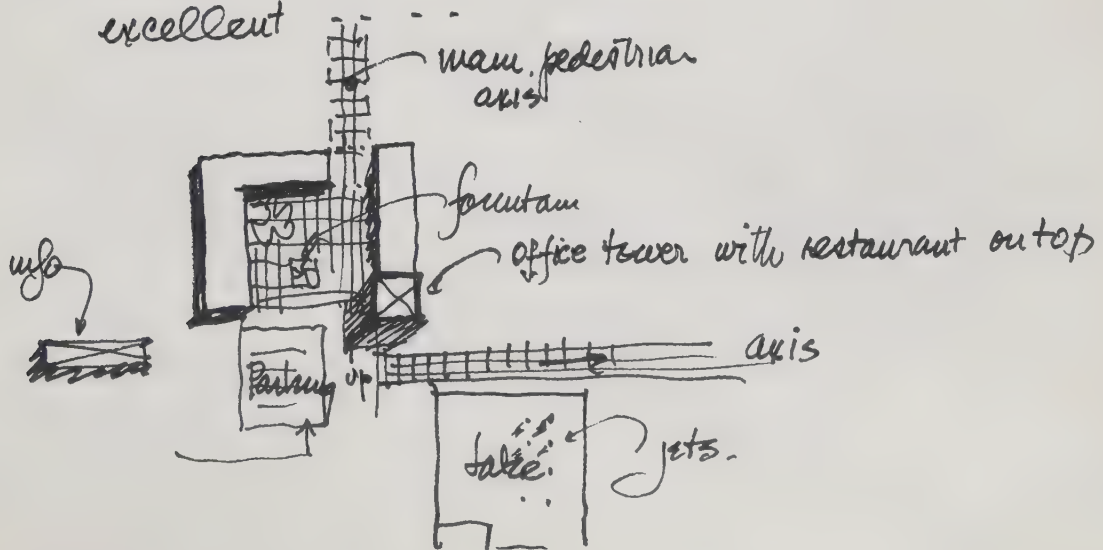 excellent
main pedestrian
axis
fountain
office tower with restaurant on top
info
axis
Parking
up
lake
jets.